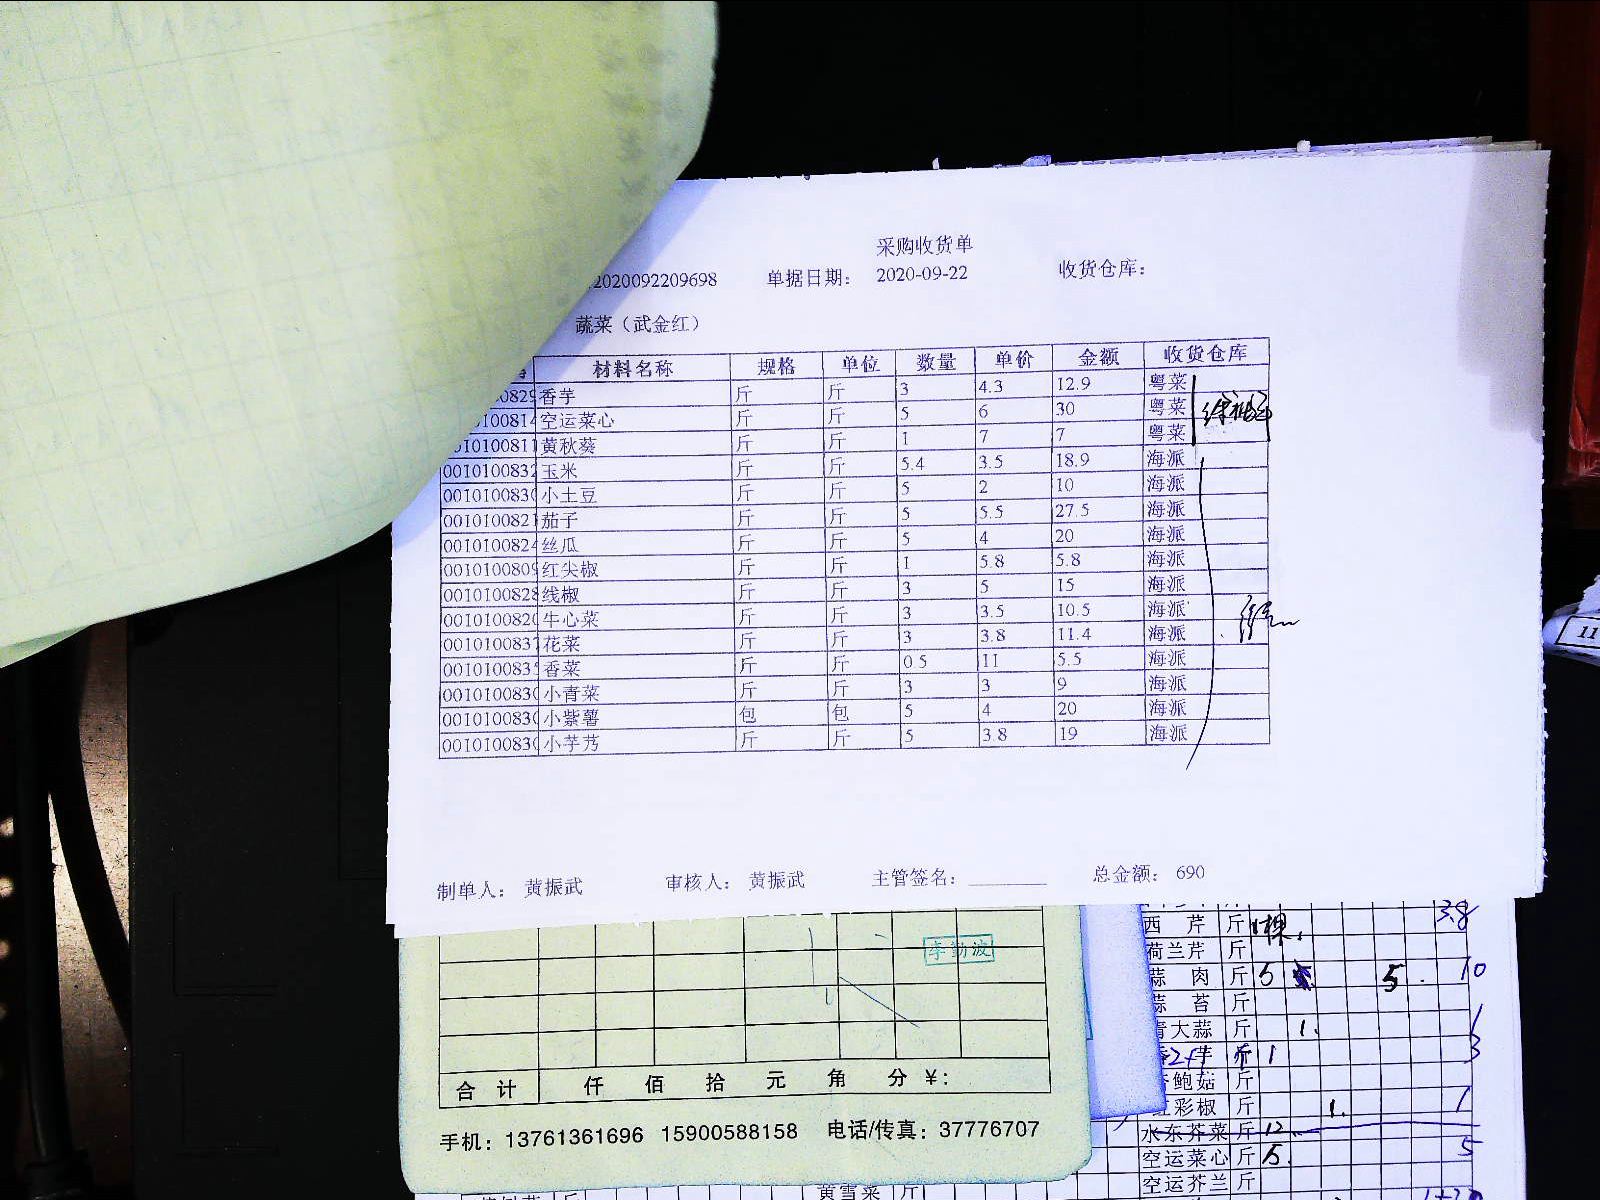 采购收货单
2020092209698 单据日期： 2020-09-22 收货仓库：
蔬菜（武金红）
材料名称 规格 单位 数量 单价 金额 收货仓库
0829 香芋 斤 斤 3 4.3 12.9 粤菜
100814 空运菜心 斤 斤 5 6 30 粤菜
010100811 黄秋葵 斤 斤 1 7 7 粤菜
0010100832 玉米 斤 斤 5.4 3.5 18.9 海派
001010083 小土豆 斤 斤 5 2 10 海派
0010100821 茄子 斤 斤 5 5.5 27.5 海派
0010100824 丝瓜 斤 斤 5 4 20 海派
0010100809 红尖椒 斤 斤 1 5.8 5.8 海派
0010100828 线椒 斤 斤 3 5 15 海派
001010082 牛心菜 斤 斤 3 3.5 10.5 海派
0010100837 花菜 斤 斤 3 3.8 11.4 海派
001010083 香菜 斤 斤 0.5 11 5.5 海派
001010083 小青菜 斤 斤 3 3 9 海派
001010083 小紫薯 包 包 5 4 20 海派
001010083 小芋艿 斤 斤 5 3.8 19 海派
制单人： 黄振武 审核人： 黄振武 主管签名：________ 总金额： 690
李勤波
合 计 仟 佰 拾 元 角 分 ¥:
手机：13761361696 15900588158 电话/传真：37776707
38
西 芹 斤 1棵.
荷兰芹 斤
蒜 肉 斤 5 5. 10
蒜 苔 斤
青大蒜 斤 1. 1
芋 斤 1 3
鲍菇 斤
红彩椒 斤 1. 1
水东芥菜 斤 12
空运菜心 斤 5. 5
空运芥兰 斤
黄雪菜 斤
11